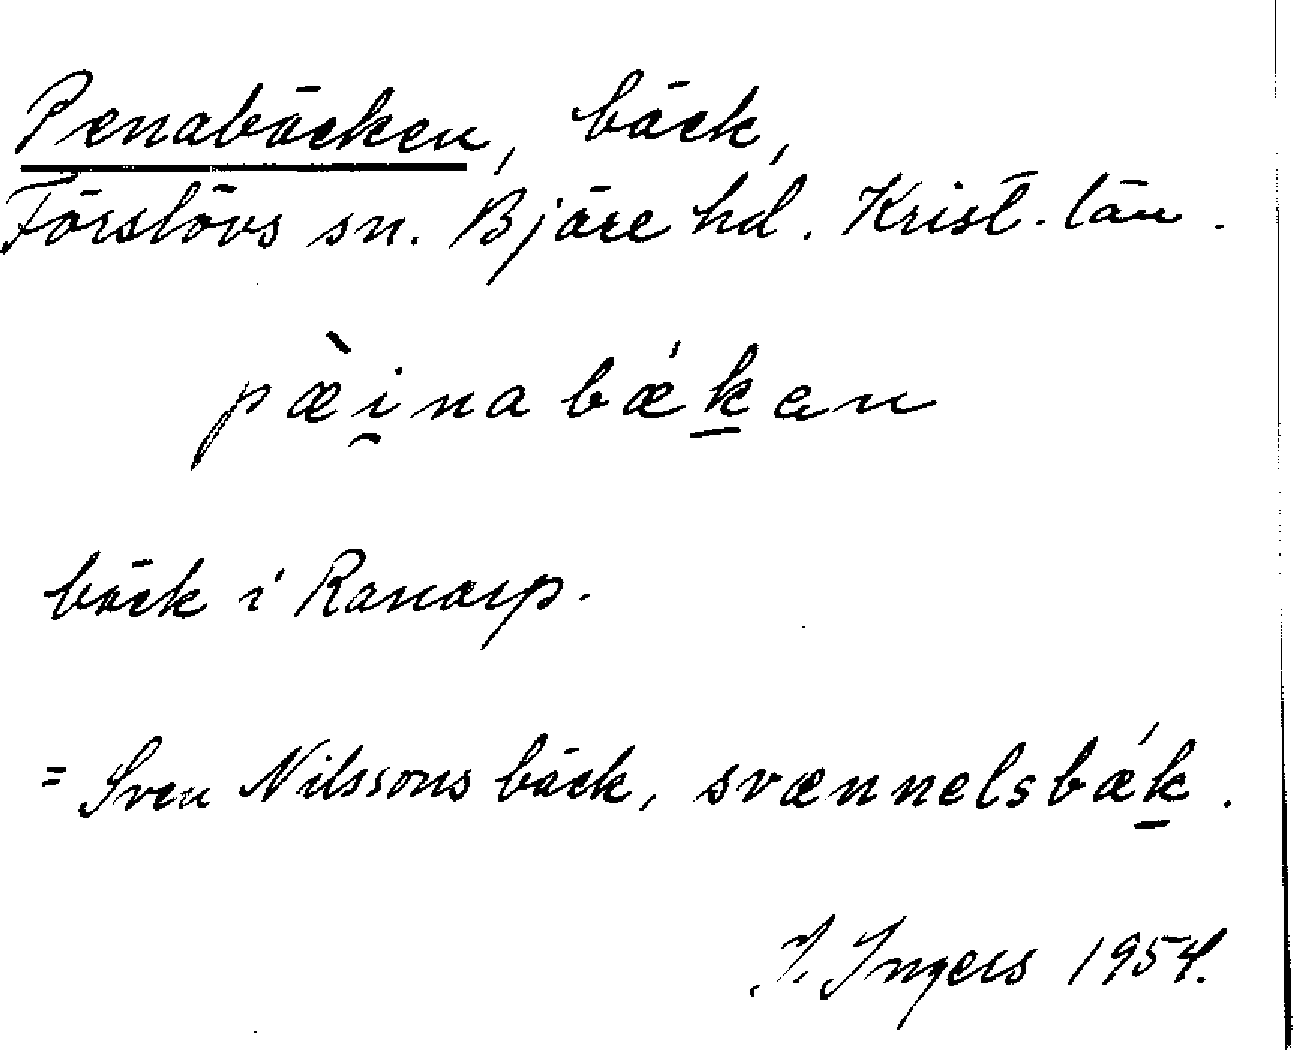 Penabäcken, bäck,
Förslövs sn. Bjäre hd. Krist. län.
pæ̀i̯nabǽk̲an
bäck i Ranarp.
= Sven Nilssons bäck, svænnelsbǽk̲.
I. Ingers 1954.